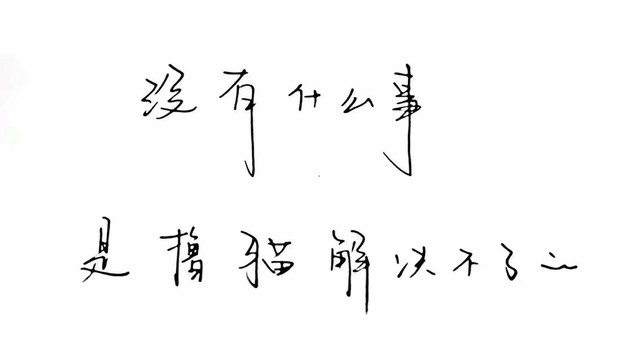 没有什么事
是撸猫解决不了的